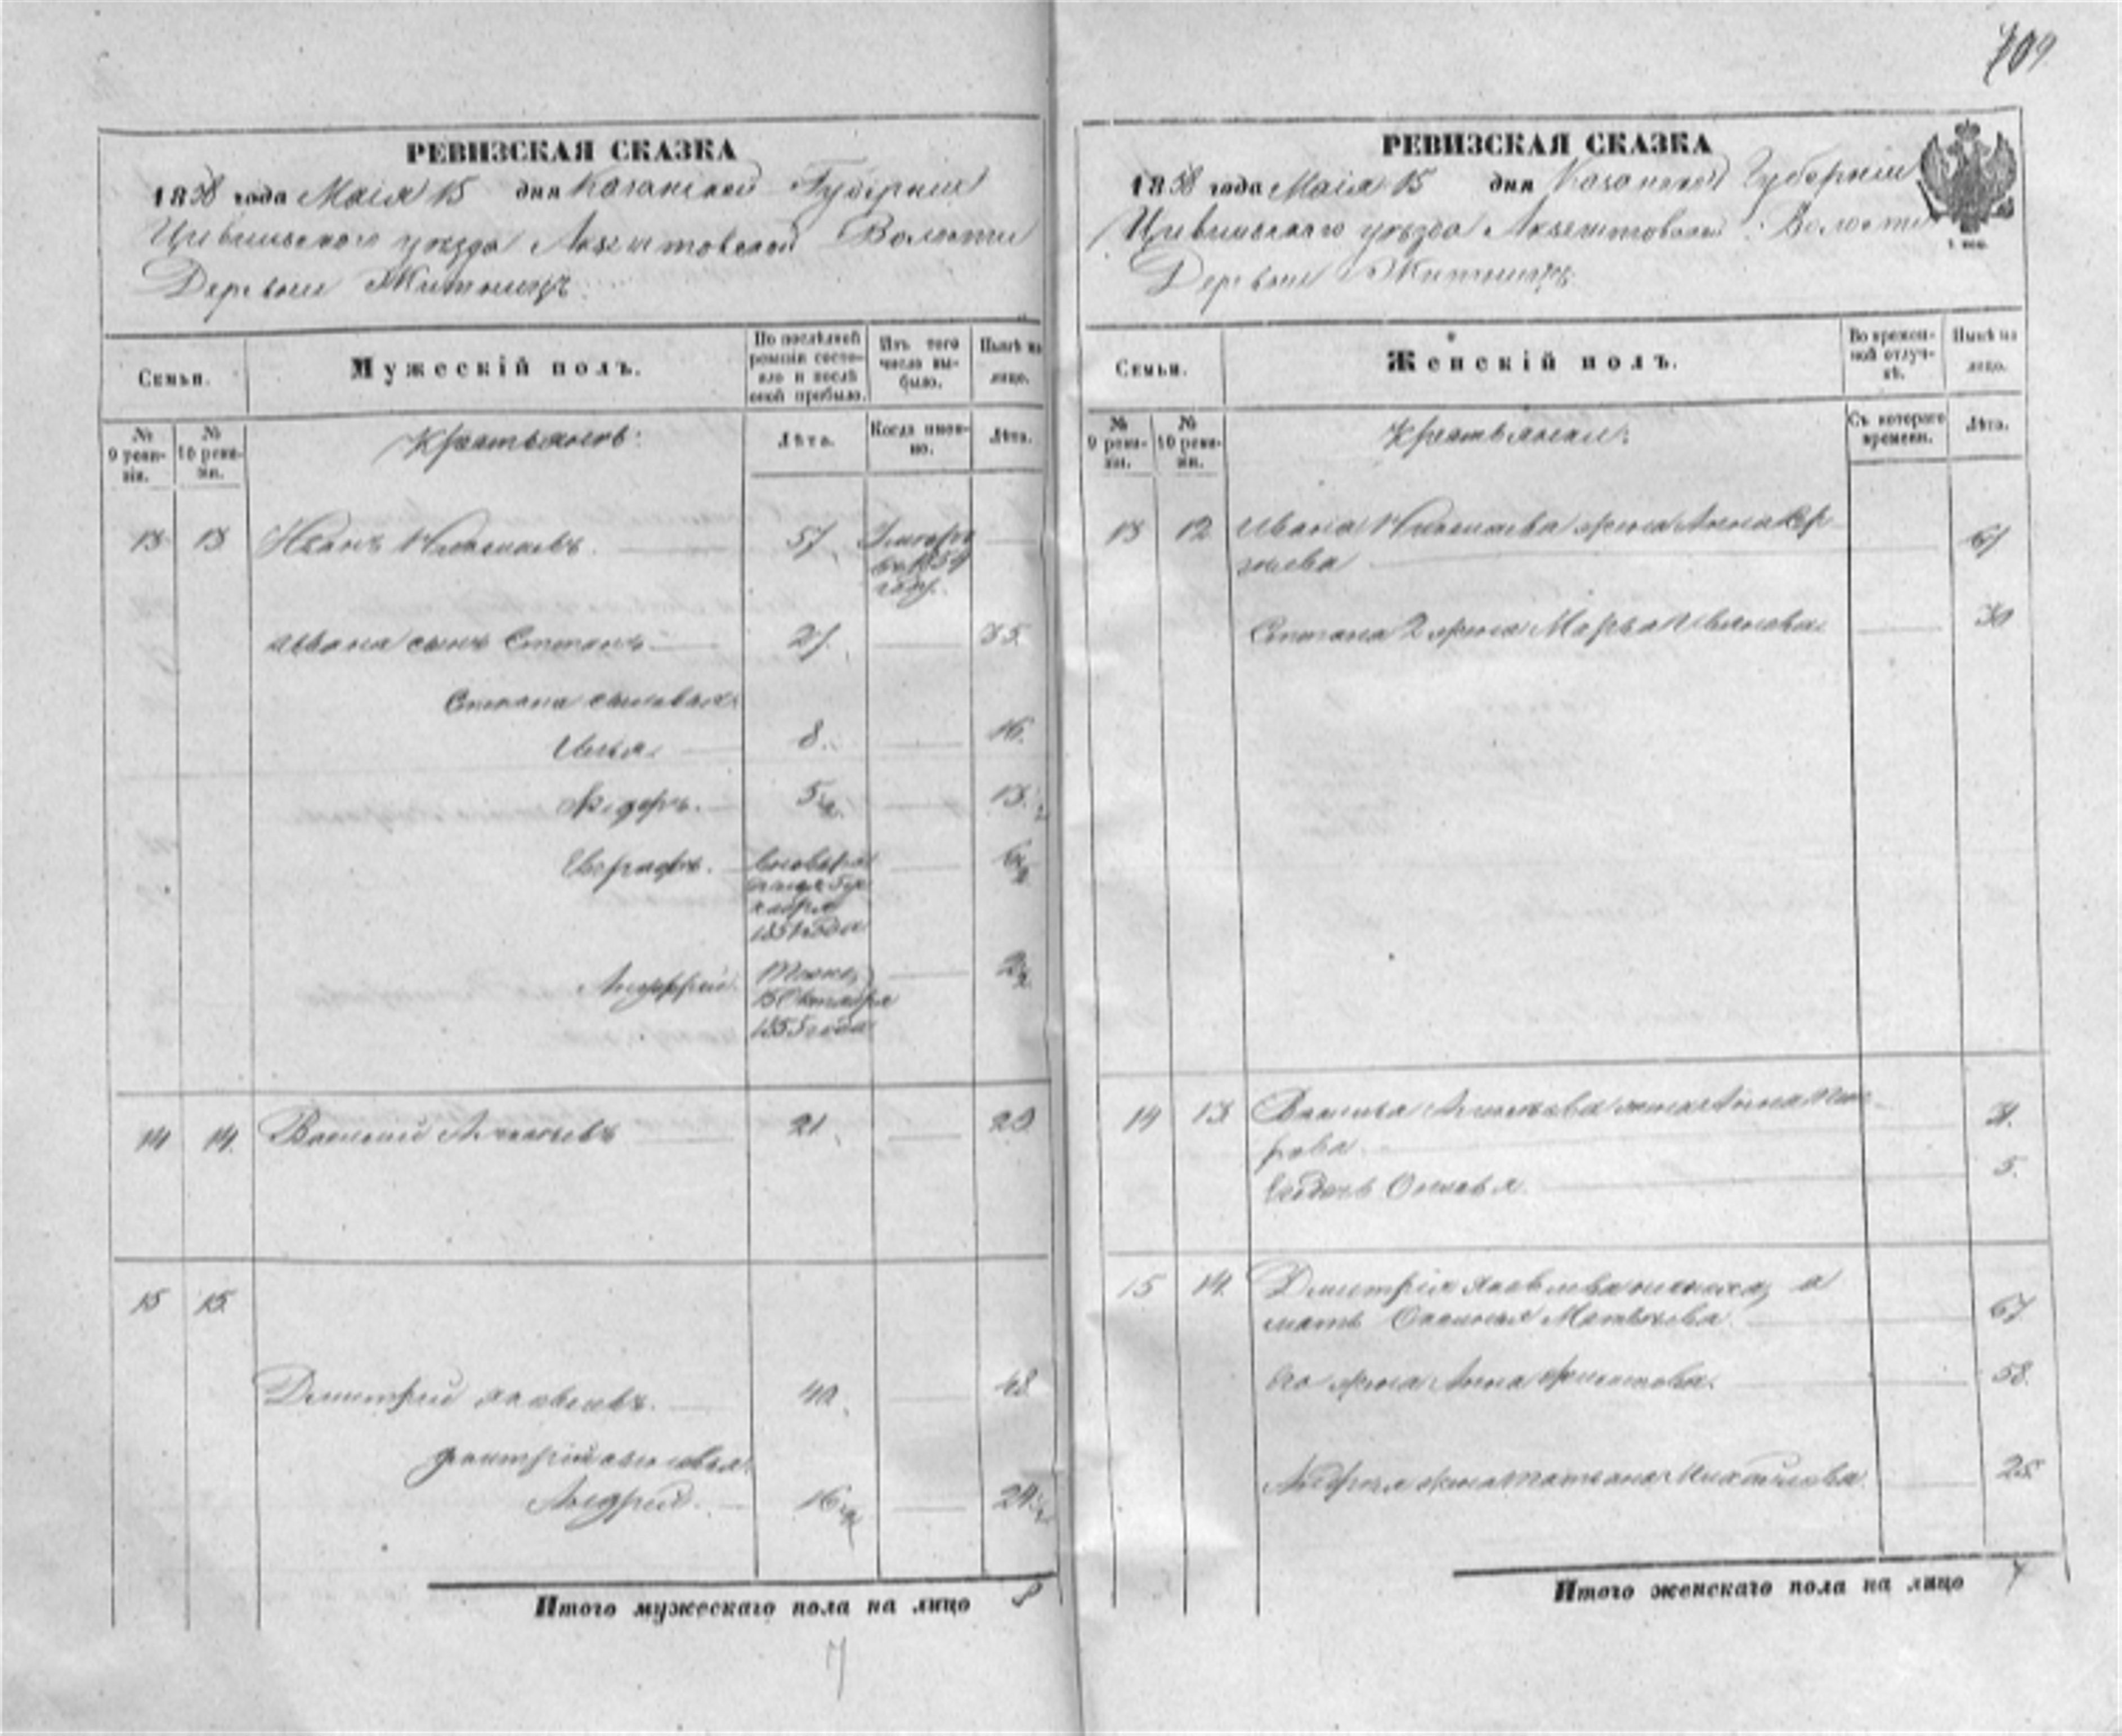 709
РЕВИЗСКАЯ СКАЗКА
1858 года Маія 15 дня Казанской Губерніи
Цивильскаго уезда Волости
Деревни
Семьи.
Мужескій полъ.
По послѣдней ревизіи состояло и послѣ оной прибыло.
Изъ того числа выбыло.
Нынѣ на лицо.
№ 9 ревизіи.
№ 10 ревизіи.
Крестьянъ:
Лѣта.
Когда именно.
Лѣта.
13 13 Иванъ Николаевъ. 57 Умеръ
въ
году.
Ивана сынъ Степанъ 27. 35.
Степана сыновья:
Илья. 8. 16.
Ѳедоръ. 5½ 13½
Евграфъ. 6½
1851 года
Андрей. Тоже, 2½
15 Октября
1855 года
14 14. Василій 21. 29.
15 15.
Дмитрій Яковлевъ. 40. 48.
Дмитрія сыновья:
Андрей. 16½ 24½
Итого мужескаго пола на лицо 8
7
РЕВИЗСКАЯ СКАЗКА
1858 года Маія 15 дня Казанской Губерніи
Цивильскаго уезда Волости
Деревни
Семьи.
Женскій полъ.
Во временной отлучкѣ.
Нынѣ на лицо.
№ 9 ревизіи.
№ 10 ревизіи.
Крестьянки:
Съ котораго времени.
Лѣта.
13 12 Ивана Николаева жена Анна
61
Степана 2 жена Марья Иванова 30
14 13. Василья жена Анна Пет-
рова 31.
5.
15 14. Дмитрія Яковлева а
мать Матвѣева 67
Его жена Анна 58.
Андрея жена Татьяна Михайлова 25.
Итого женскаго пола на лицо 7